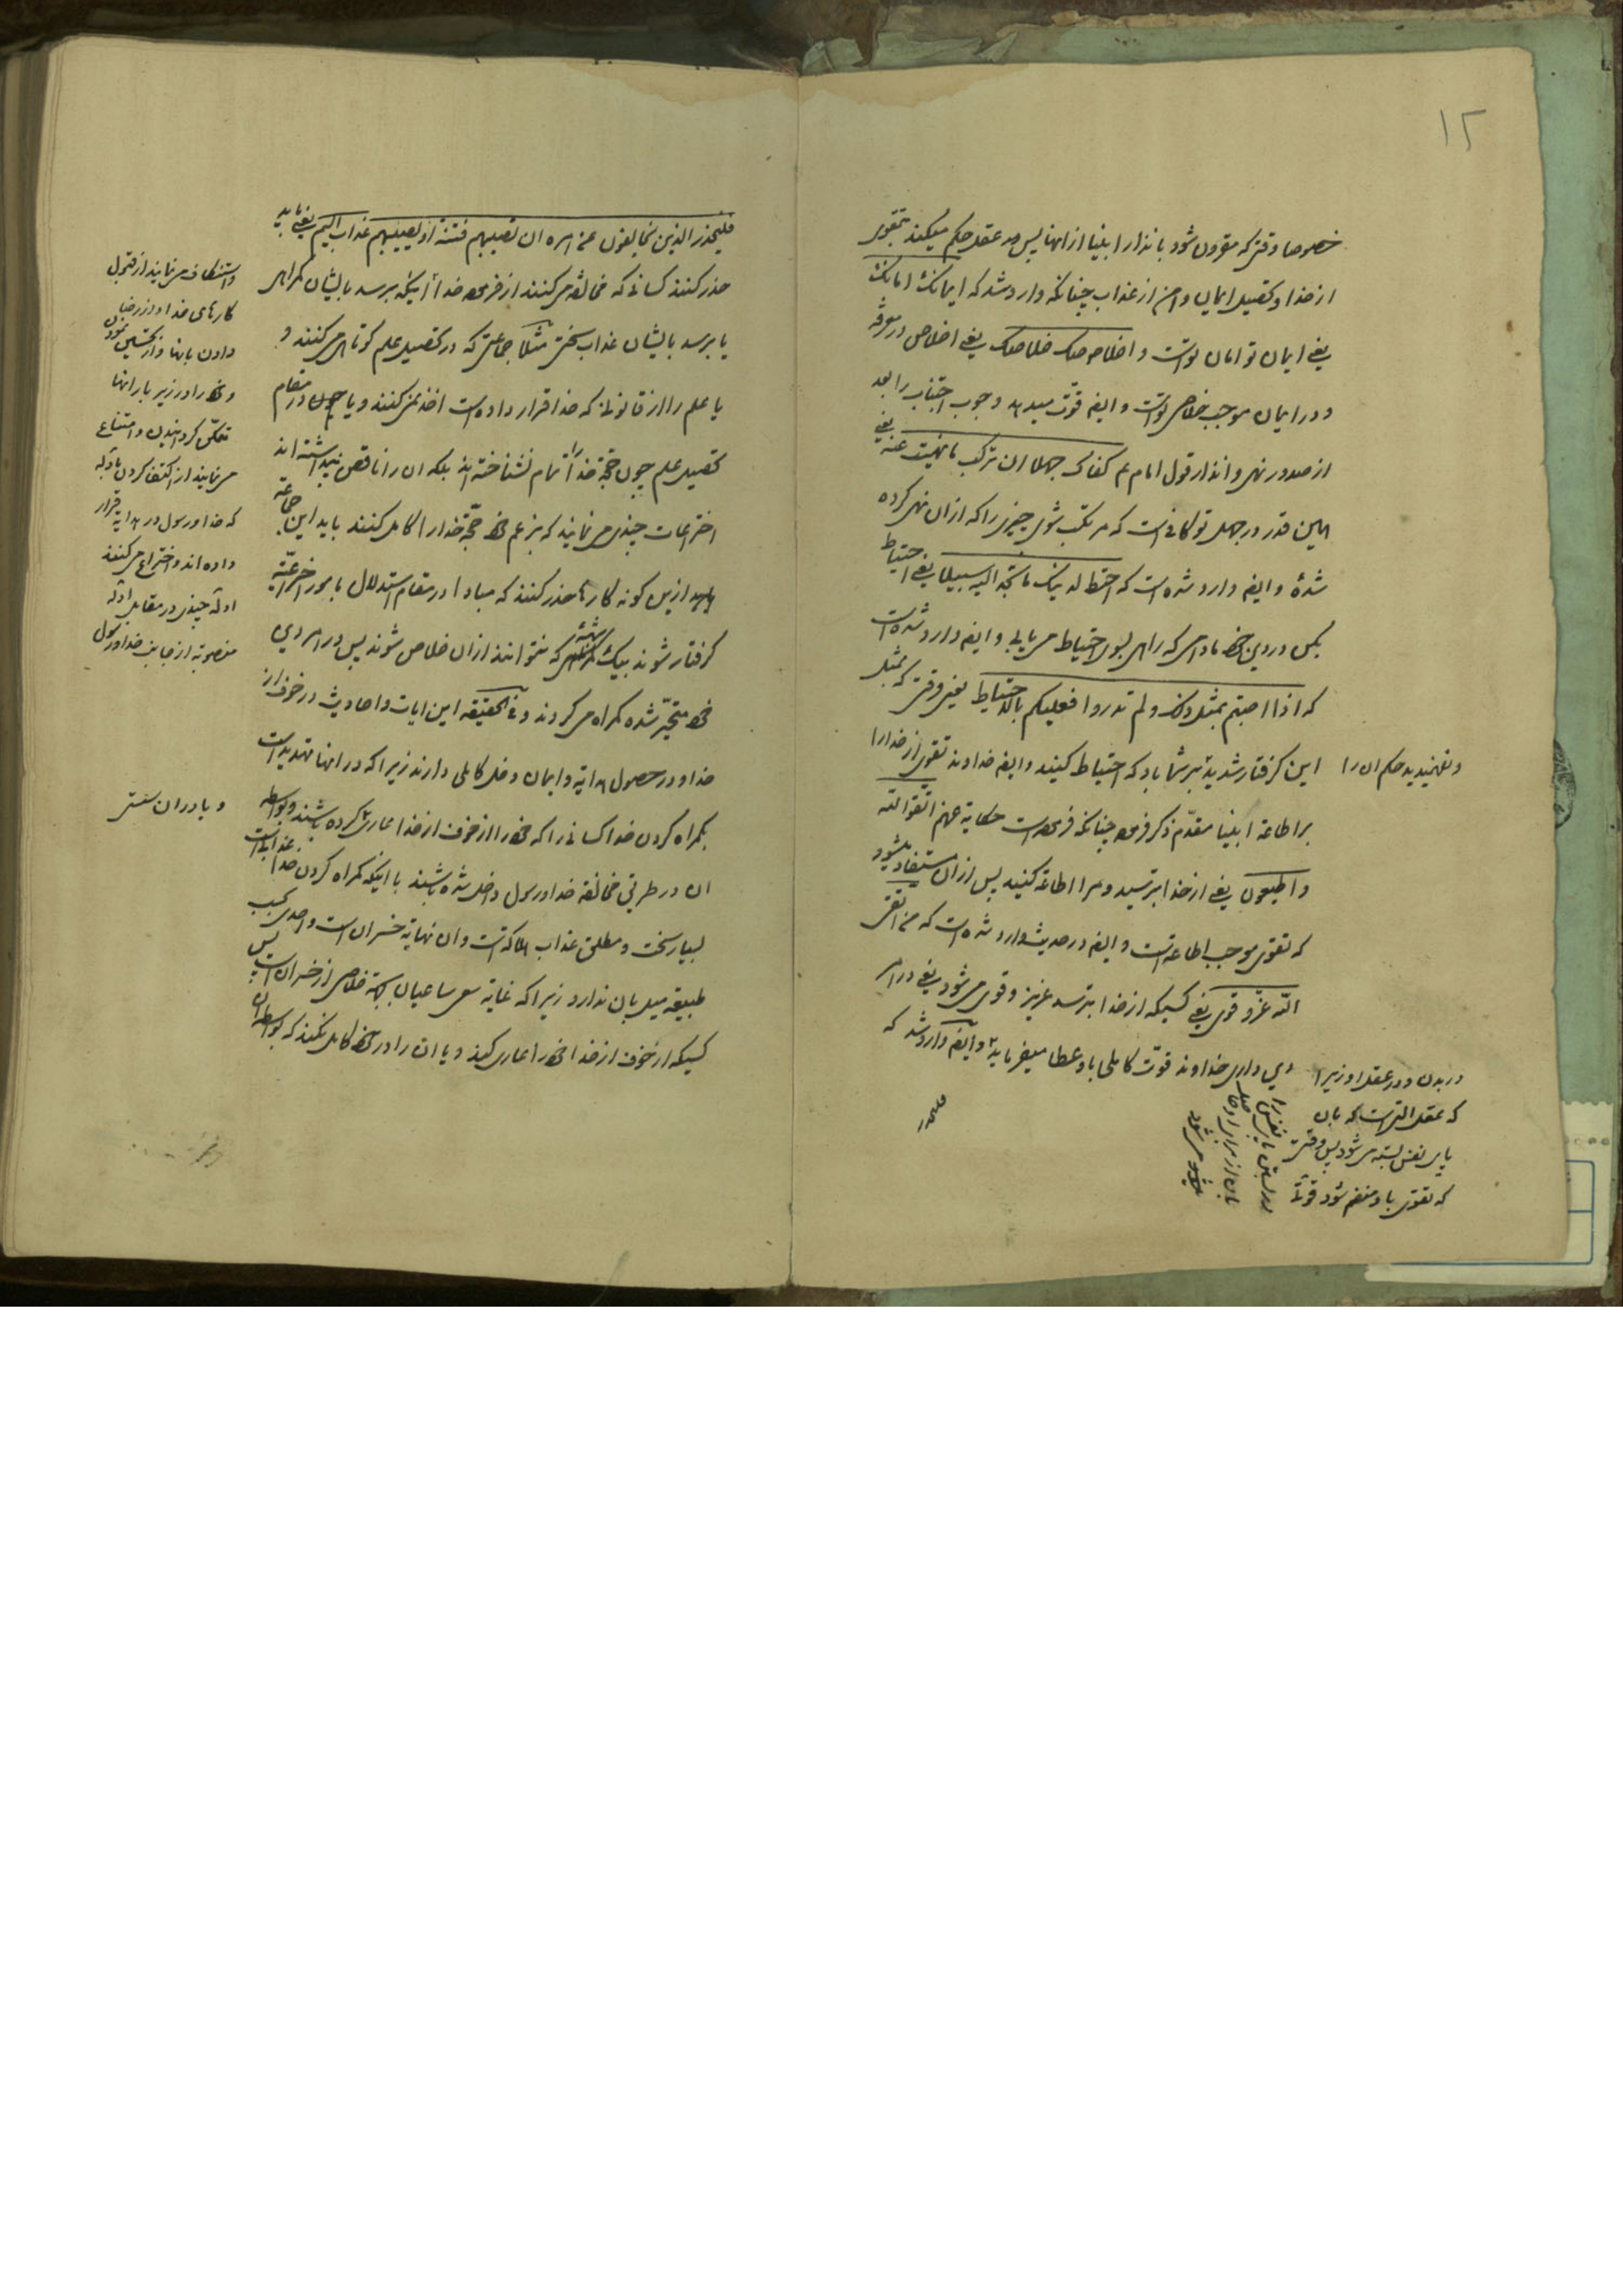 ١٢
خصوصا وقتی که مقرون شود بانذار ابلیغا از انها پس عقل حکم میکند بتقوی
از خدا و تحصیل ایمان و امن از عذاب چنانکه وارد شد که ایمانک امانک
یعنی ایمان تو امان تو است و اخلاصک خلاصک یعنی اخلاص در معرفة
و در ایمان موجب خلاصی تو است و ایضا قوت میدهد وجوب اجتناب را بعد
از صدور نهی و انذار قول امام ع کفاک جهلا ان ترکب ما نهیت عنه یعنی
همین قدر در جهل تو کافی است که مرتکب شوی چیزی را که از ان نهی کرده
شدهٔ و ایضا وارد شده است که احتط لدینک ما تجد الیه سبیلا یعنی احتیاط
بکن در دین خود مادامی که راهی بسوی احتیاط می یابی و ایضا وارد شده است
که اذا اصبتم بمثل ذلک و لم تدروا فعلیکم بالاحتیاط یعنی وقتی که بمثل
این گرفتار شدید بر شما باد که احتیاط کنید و ایضا خداوند تقوی از خدا را
و نفهمیدید حکم ان را
بر اطاعة ابلیغا مقدم ذکر فرموده چنانکه فرموده است حکایة عنهم اتقوا الله
و اطیعون یعنی از خدا بترسید و مرا اطاعة کنید پس از ان مستفاد میشود
که تقوی موجب اطاعة است و ایضا در حدیث وارد شده است که من اتقی
الله عزّ و قوی یعنی کسیکه از خدا بترسد عزیز و قوی می شود یعنی در امر
دین داری خداوند قوّت کاملی باو عطا میفرماید و ایضا وارد شد که
در بدن و در عقل او زیرا
که عقل التی است که بان
پای نفس بسته می شود پس وقتی
که تقوی باو منضم شود قوّة
فلیحذر
فلیحذر الذین یخالفون عن امره ان تصیبهم فتنة او یصیبهم عذاب الیم یعنی باید
حذر کنند کسانی که مخالفة می کنند از فرموده خدا از اینکه برسد بایشان گمراهی
یا برسد بایشان عذاب سختی مثلا جماعتی که در تحصیل علم کوتاهی می کنند و
یا علم را از قانونی که خدا قرار داده است اخذ نمی کنند و یا چون در مقام
تحصیل علم چون حجّة خدا را تمام نشناخته اند بلکه ان را ناقص پنداشته اند
اختراعات چندی می نمایند که بزعم خود حجّة خدا را کامل کنند باید این جماعة
از این گونه کارها حذر کنند که مبادا در مقام استدلال بامور اختراعیّه
گرفتار شوند بیک شبهه که نتوانند از ان خلاص شوند پس در امر دین
خود متحیّر شده گمراه می گردند و فی الحقیقه این ایات و احادیث در خوف از
خدا و در حصول هدایة و ایمان دخل کاملی دارند زیرا که در انها تهدید است
بگمراه کردن خدا کسانی را که خود را از خوف از خدا عاری کرده باشند و بواسطه
ان در طریق مخالفة خدا و رسول داخل شده باشند با اینکه گمراه کردن خدا عذابی است
بسیار سخت و مطلق عذاب هلاکة است و ان نهایة خسران است و احدی بحسب
طبیعة میل بان ندارد زیرا که غایة سعی ساعیان بجهة خلاصی از خسران است پس
کسیکه از خوف از خدا خود را عاری کند و یا ان را در خود کامل نکند که بواسطه ان
و استنکاف می نمایند از قبول
کارهای خدا و از رضا
دادن بانها و از تحسین نمودن
و خود را در زیر بار انها
متمکّن گردانیدن و امتناع
می نمایند از اکتفا کردن بادلّه
که خدا و رسول در هدایة قرار
داده اند و اختراع می کنند
ادلّه چندی در مقابل ادلّه
منصوبه از جانب خدا و رسول
و یا در ان سستی